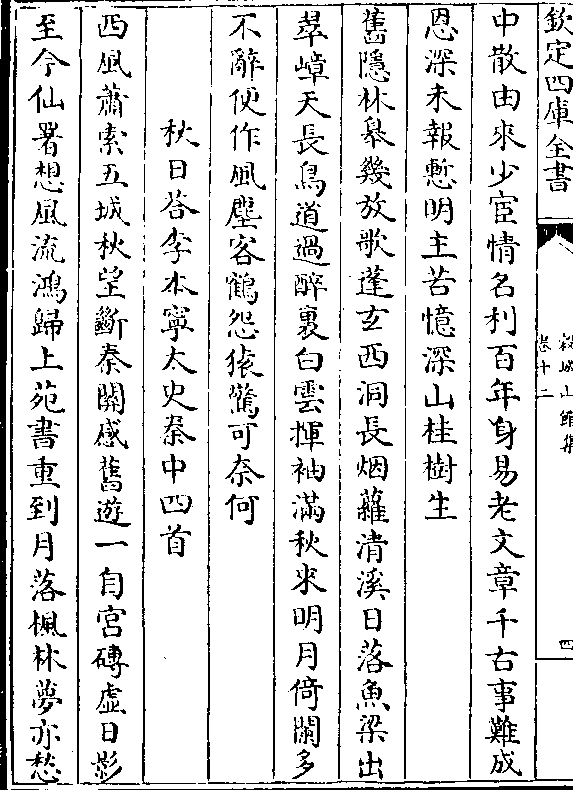 欽定四庫全書
榖城山館集
卷十二
四
中散由來少宦情名利百年身易老文章千古事難成
恩深未報慙明主苦憶深山桂樹生
舊隱林皋幾放歌蓬玄西洞長烟蘿清溪日落魚梁出
翠嶂天長鳥道過醉裏白雲揮袖滿秋來明月倚闌多
不辭便作風塵客鶴怨猿驚可奈何
秋日答李本寧太史秦中四首
西風蕭索五城秋望斷秦關感舊遊一自宮磚虛日影
至今仙署想風流鴻歸上苑書重到月落楓林夢亦愁